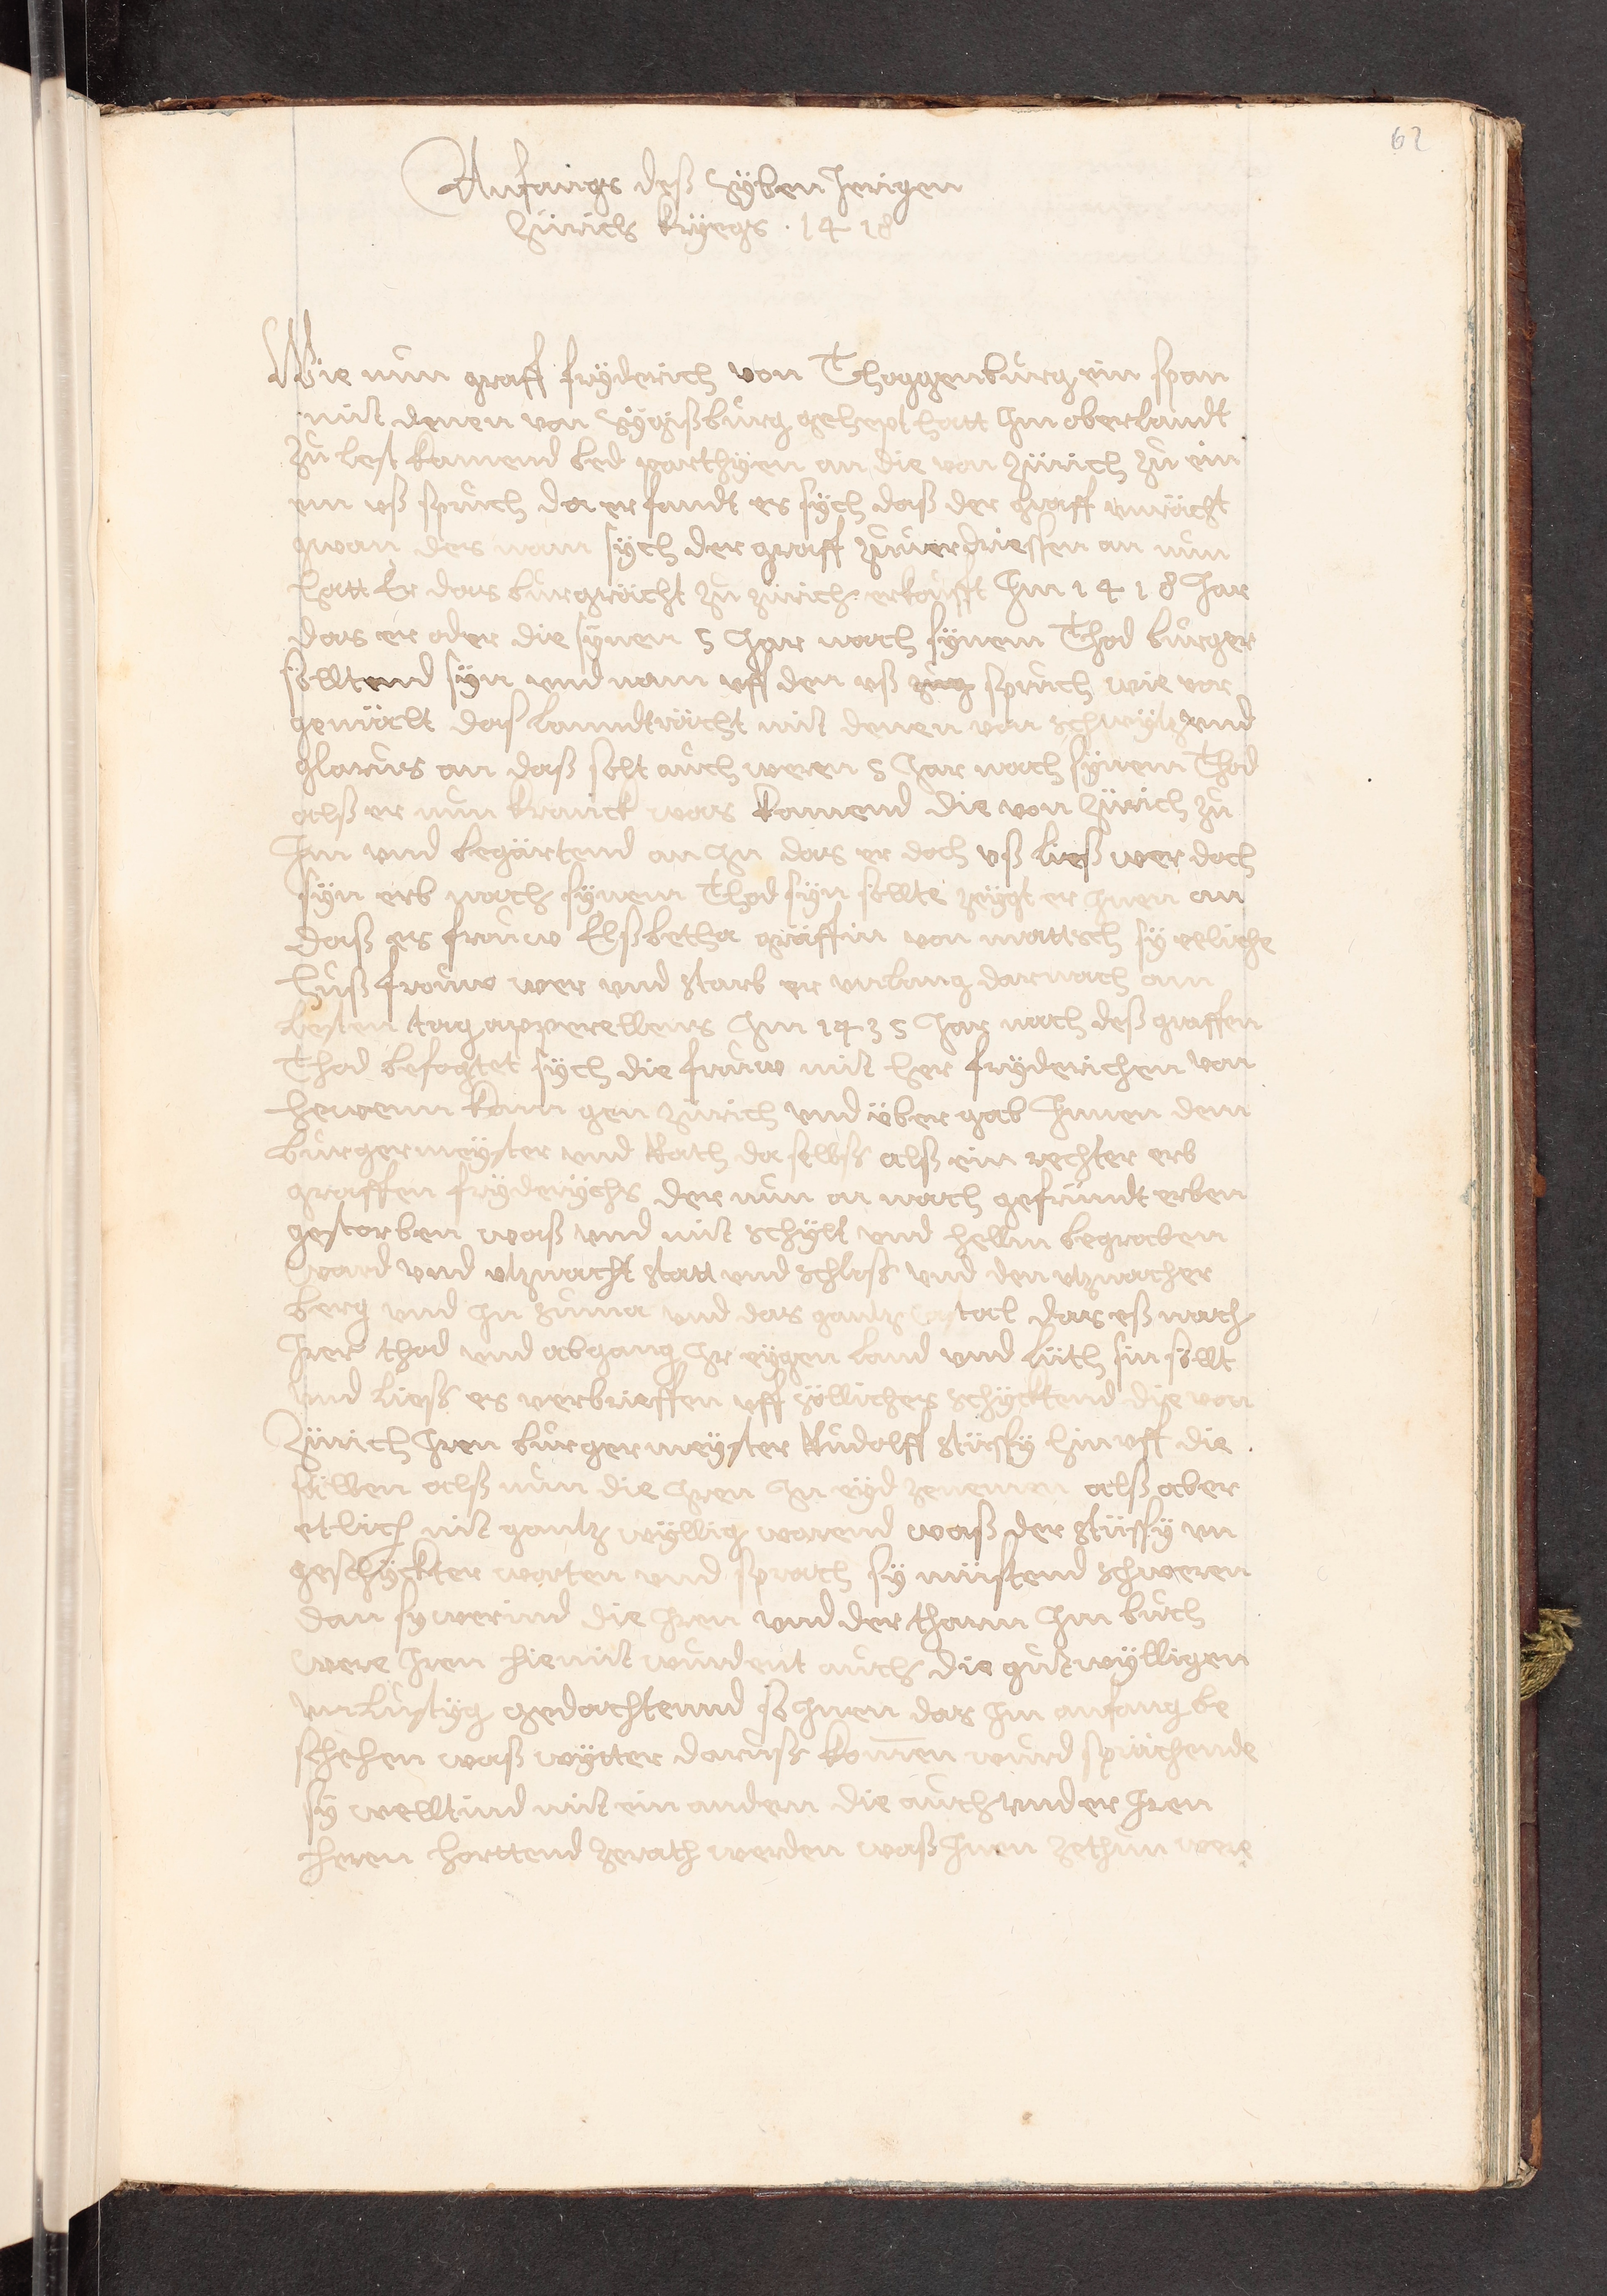 62
Anfangs deß Syben Jerigen
Zürich kryegs . 1418
Wie nun graff fryderich von Thoggenburg ein span
mit denen von Sygißburg gehept hatt Im oberlandt
zu lest kamend bed parthyen an die von Zürich zu ein
em uß spruch da er fandt es sych daß der graff unrächt
gwan des nam sych der graff zuverdriessen an nun
hatt Er das burgrächt zu zürich erkoufft Im 1418 Jar
das er oder die synen 5 Jar nach synem Thod burger
solltend syn und nam uff den uß spruch wie vor
gemält das lanndträcht mit denen von schwytz und
glarus an daß solt auch weren 5 Jar nach synem Thod
alß er nun kranck was kamend die von Zürich zu
Im und begärtend an In das er doch uß ließ wer doch
syn erb nach synem Thod syn sollte zeygt er Inen an
daß es frouw Elßbetha gräffin von mattsch sy eeliche
huß frouw wer und starb er unlang darnach am
lesten tag apperellens Im 1435 Jar nach deß graffen
Thod befogtet sych die frouw mit her fryderichen von
hewenn kam gen zürich und über gab Innen dem
burgermeyster und Rath da selbs alß ein rechter erb
graffen fryderychs der nun an nach gefründt erben
gestorben waß und mit schylt und hellm begraben
ward und utznacht statt und schloss und den utznacher
berg und In zuma und das gantz tal das eß nach
Irer thod und abgang Ir eygen land und lüth sin söllt
und liess es verbrieffen uff söllichers schycktend die von
Zürich Iren burgermeyster Rudolff stüssy hin uff die
sälben alß nun die Iren In eyd zenemen alß aber
etlich nit gantz wyllig warend waß der stüssy un
geschyckter worten und sprach sy müstend schweren
dan sy werind die Iren und der tharm Im buch
were Iren hiemit wurdent auch die gutwylligen
unlustyg gedachtennd so Inen das Im anfang be
schehen waß wytter daruss komen wurd sprächende
sy welltind mit ein andern die auch under Iren
heren horttend zerath werden waß Inen zethun were